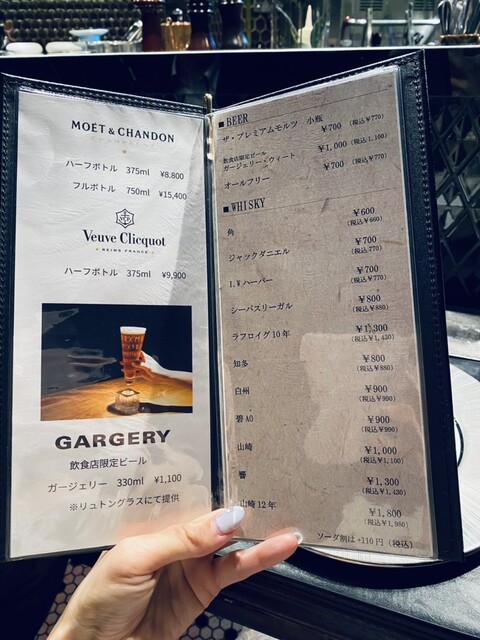 MOËT & CHANDON
ハーフボトル 375ml ¥8,800
フルボトル 750ml ¥15,400
Veuve Clicquot
REIMS FRANCE
ハーフボトル 375ml ¥9,900
GARGERY
飲食店限定ビール
ガージェリー 330ml ¥1,100
※リュトングラスにて提供
■BEER
ザ・プレミアムモルツ 小瓶 ¥700 (税込¥770)
飲食店限定ビール
ガージェリー・ウィート ¥1,000 (税込1,100)
オールフリー ¥700 (税込¥770)
■WHISKY
角 ¥600 (税込¥660)
ジャックダニエル ¥700 (税込¥770)
I.Wハーパー ¥700 (税込¥770)
シーバスリーガル ¥800 (税込¥880)
ラフロイグ10年 ¥1,300 (税込¥1,430)
知多 ¥800 (税込¥880)
白州 ¥900 (税込¥990)
碧AO ¥900 (税込¥990)
山崎 ¥1,000 (税込¥1,100)
響 ¥1,300 (税込¥1,430)
山崎12年 ¥1,800 (税込¥1,980)
ソーダ割は+110円 (税込)